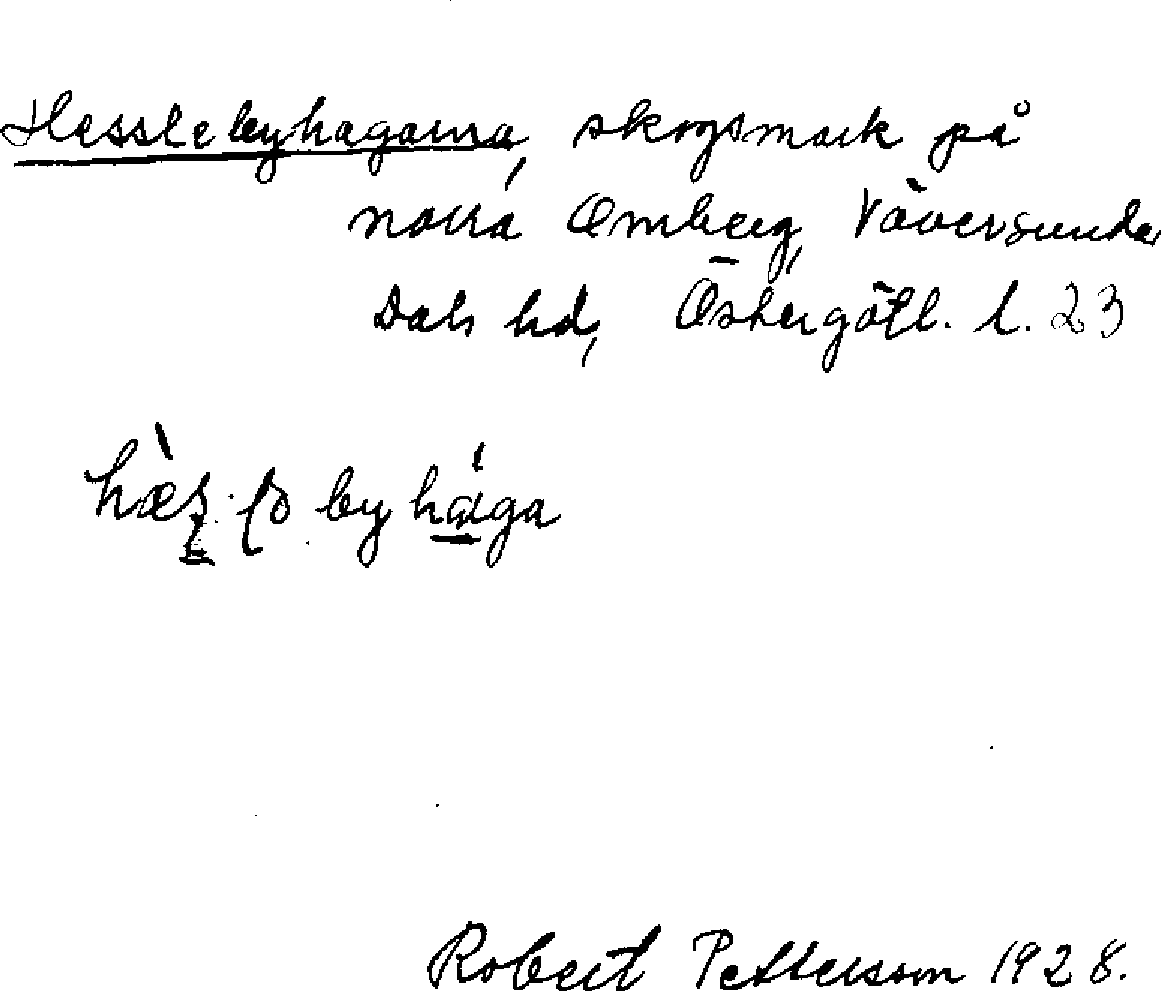 Hesslebyhagarna, skogsmark på
norra Omberg, Väversunda
Dals hd, Östergötl. l. 23
by
Robert Pettersson 1928.